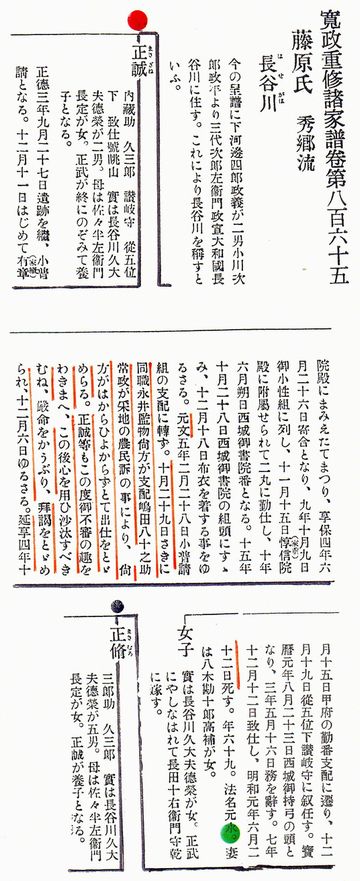 寛政重修諸家譜卷第八百六十五
藤原氏 秀郷流
長谷川
はせがは
今の呈譜に下河邊四郎政義が二男小川次
郎政平より三代次郎左衞門政宣大和國長
谷川に住す。これにより長谷川を稱すと
いふ。
正誠
まさざね
内藏助 久三郎 讃岐守 從五位
下 致仕號眺山 實は長谷川久大
夫德榮が二男。母は佐々半左衞門
長定が女。正武が終にのぞみて養
子となる。
正德三年九月二十七日遺跡を繼、小普
請となる。十二月十一日はじめて有章
(家繼)
院殿にまみえたてまつり、享保四年六
月二十六日寄合となり、九年十月九日
御小性組に列し、十一月十五日惇信院
(家重)
殿に附屬せられて二丸に勤仕し、十年
六月朔日西城御書院番となる。十五年
十月二十八日西城御書院の組頭にすゝ
み、十二月十八日布衣を着する事をゆ
るさる。元文五年二月二十八日小普請
組の支配に轉ず。十月二十九日さきに
同職永井監物尙方が支配嶋田八十之助
常政が采地の農民訴の事により、尙
方がはからひよからずとて出仕をとゞ
めらる。正誠等もこの度御不審の趣を
わきまへ、この後心を用ひ沙汰すべき
むね、嚴命をかうぶり、拜謁をとゞめ
られ、十二月六日ゆるさる。延享四年十
月十五日甲府の勤番支配に遷り、十二
月十九日從五位下讃岐守に叙任す。寶
曆元年八月二十三日西城御持弓の頭と
なり、三年五月十六日務を辭す。七年
十二月十二日致仕し、明和元年六月二
十二日死す。年六十九。法名元水。妻
は八木勘十郎高補が女。
女子
實は長谷川久大夫德榮が女。正武
にやしなはれて長田十右衞門守乾
に嫁す。
正脩
まさむろ
三郎助 久三郎 實は長谷川久大
夫德榮が五男。母は佐々半左衞門
長定が女。正誠が養子となる。